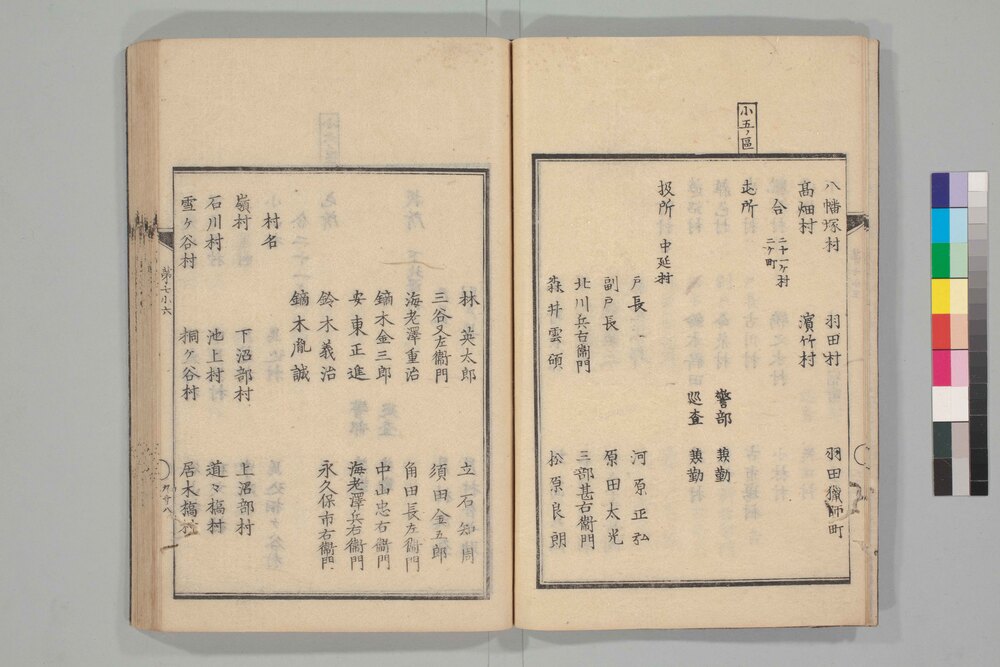 小五ノ區
八幡塚村　羽田村　羽田獵師町
髙畑村　濱竹村
合　二十一ヶ村
二ヶ町
屯所　警部　兼勤
巡査　兼勤
扱所　中延村
戸長　河原正弘
副戸長　原田太光
北川兵右衞門　三部甚右衞門
森井雲碩　松原良朗
林英太郎　立石知周
三谷又左衞門　須田金五郎
海老澤重治　角田長左衞門
鏑木金三郎　中山忠右衞門
安東正進　海老澤兵右衞門
鈴木義治　永久保市右衞門
鏑木胤誠
村名
嶺村　下沼部村　上沼部村
石川村　池上村　道々橋村
雪ヶ谷村　桐ヶ谷村　居木橋村
第七小六